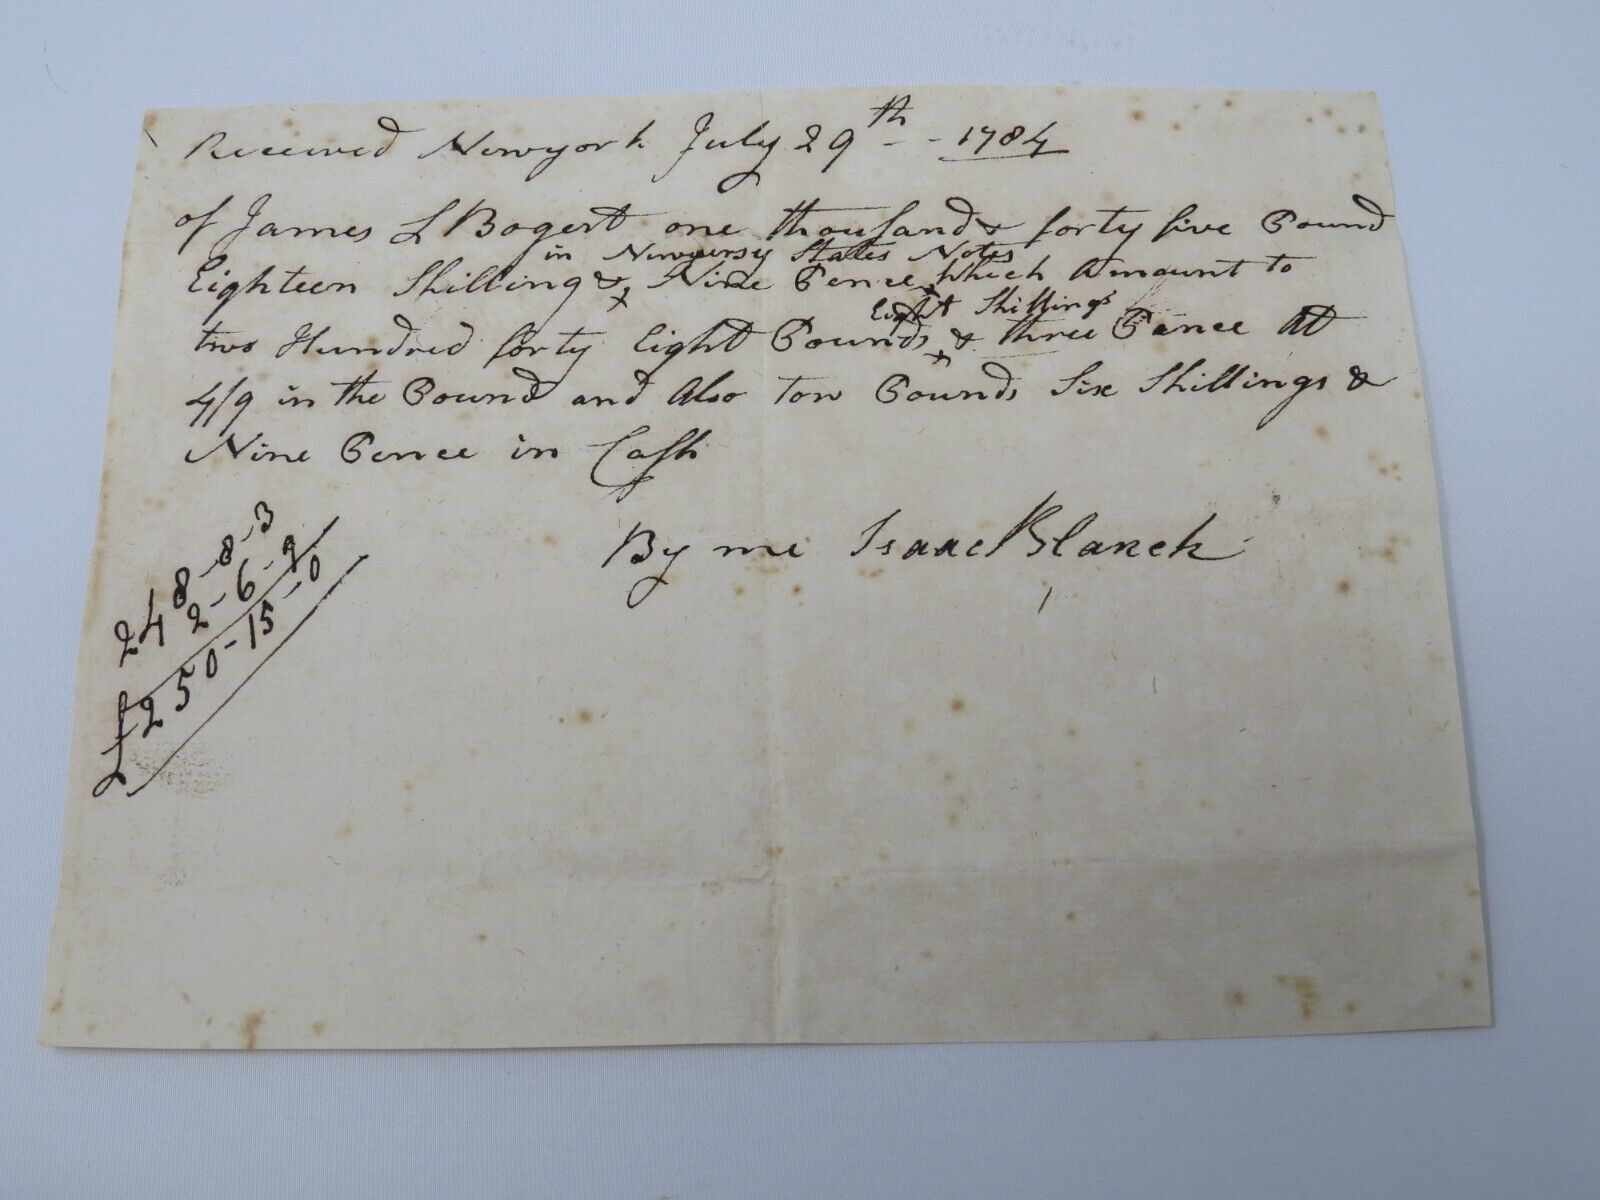 Received Newyork July 29th - - 1784
of James L Bogert one thousand & forty five Pound
in Newjersy States Notes
Eighteen Shilling & Nine Pence which Amount to
Eight Shillings
two Hundred forty Eight Pounds & three Pence At
4/9 in the Pound and Also tow Pounds Six Shillings &
Nine Pence in Cash
By me Isaac Blanch
248-8-3
2-6-9
£250-15-0